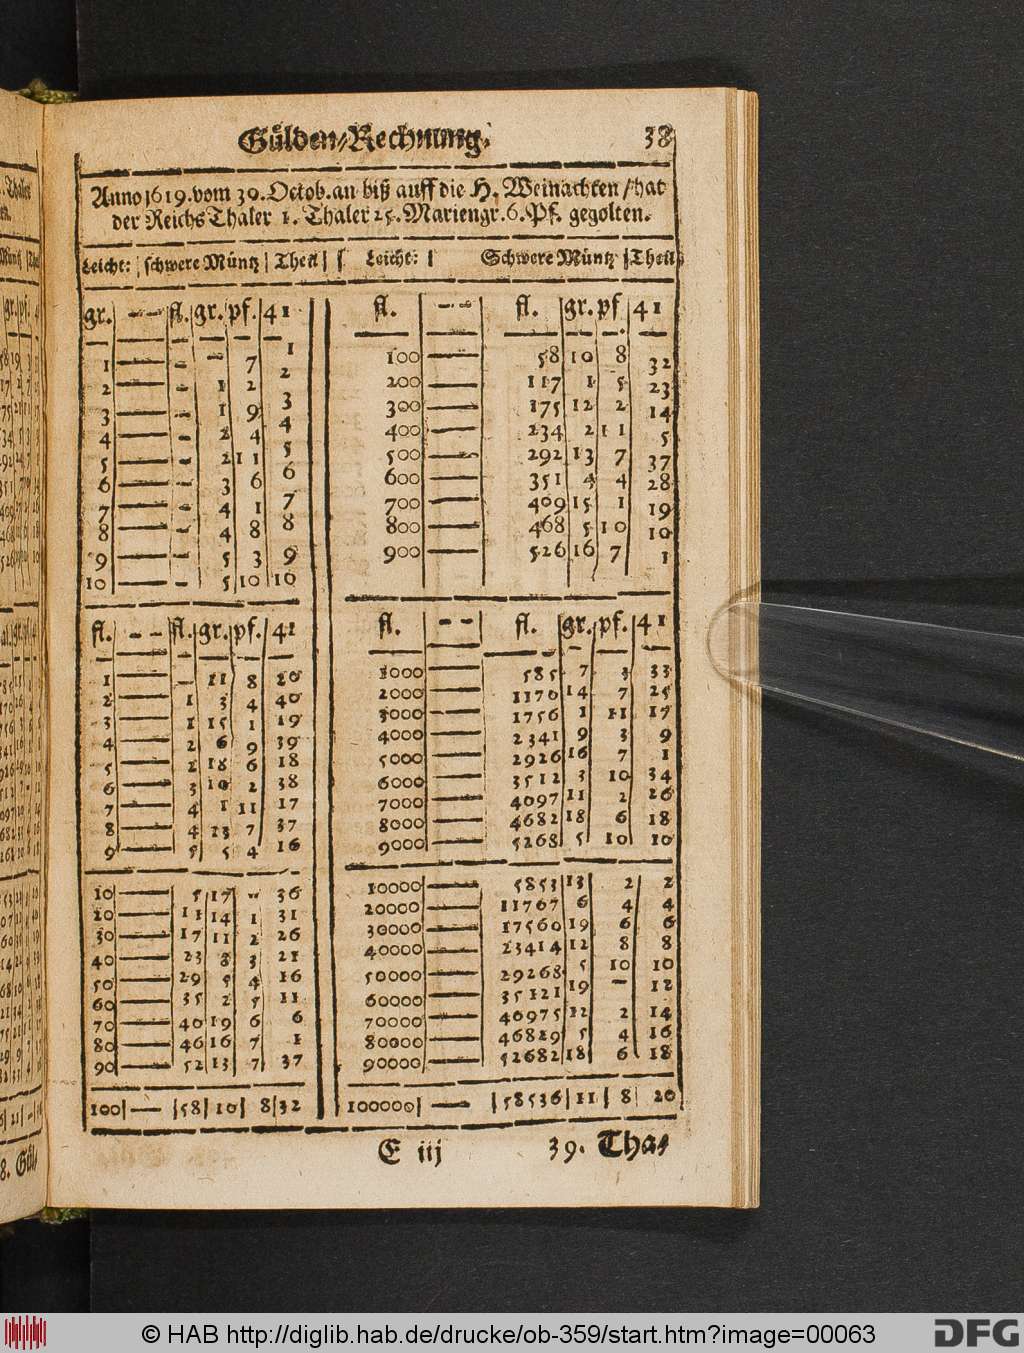 Gülden-Rechnung. 38
Anno 1619. vom 30. Octob. an biß auff die H. Weinachten / hat
der Reichs Thaler 1. Thaler 25. Mariengr. 6. Pf. gegolten.
Leicht: | schwere Müntz | Theil | | Leicht: | Schwere Müntz | Theil
gr. | - - | fl. | gr. | pf. | 41
1 — - - 7 1
2 — - 1 2 2
3 — - 1 9 3
4 — - 2 4 4
5 — - 2 11 5
6 — - 3 6 6
7 — - 4 1 7
8 — - 4 8 8
9 — - 5 3 9
10 — - 5 10 10
fl. | - - | fl. | gr. | pf. | 41
1 — - 11 8 20
2 — 1 3 4 40
3 — 1 15 1 19
4 — 2 6 9 39
5 — 2 18 6 18
6 — 3 10 2 38
7 — 4 1 11 17
8 — 4 13 7 37
9 — 5 5 4 16
10 — 5 17 - 36
20 — 11 14 1 31
30 — 17 11 2 26
40 — 23 8 3 21
50 — 29 5 4 16
60 — 35 2 5 11
70 — 40 19 6 6
80 — 46 16 7 1
90 — 52 13 7 37
100 — 58 10 8 32
fl. | - - | fl. | gr. | pf. | 41
100 — 58 10 8 32
200 — 117 1 5 23
300 — 175 12 2 14
400 — 234 2 11 5
500 — 292 13 7 37
600 — 351 4 4 28
700 — 409 15 1 19
800 — 468 5 10 10
900 — 526 16 7 1
fl. | - - | fl. | gr. | pf. | 41
1000 — 585 7 3 33
2000 — 1170 14 7 25
3000 — 1756 1 11 17
4000 — 2341 9 3 9
5000 — 2926 16 7 1
6000 — 3512 3 10 34
7000 — 4097 11 2 26
8000 — 4682 18 6 18
9000 — 5268 5 10 10
10000 — 5853 13 2 2
20000 — 11707 6 4 4
30000 — 17560 19 6 6
40000 — 23414 12 8 8
50000 — 29268 5 10 10
60000 — 35121 19 - 12
70000 — 40975 12 2 14
80000 — 46829 5 4 16
90000 — 52682 18 6 18
100000 — 58536 11 8 20
E iij 39. Tha-
© HAB http://diglib.hab.de/drucke/ob-359/start.htm?image=00063 DFG